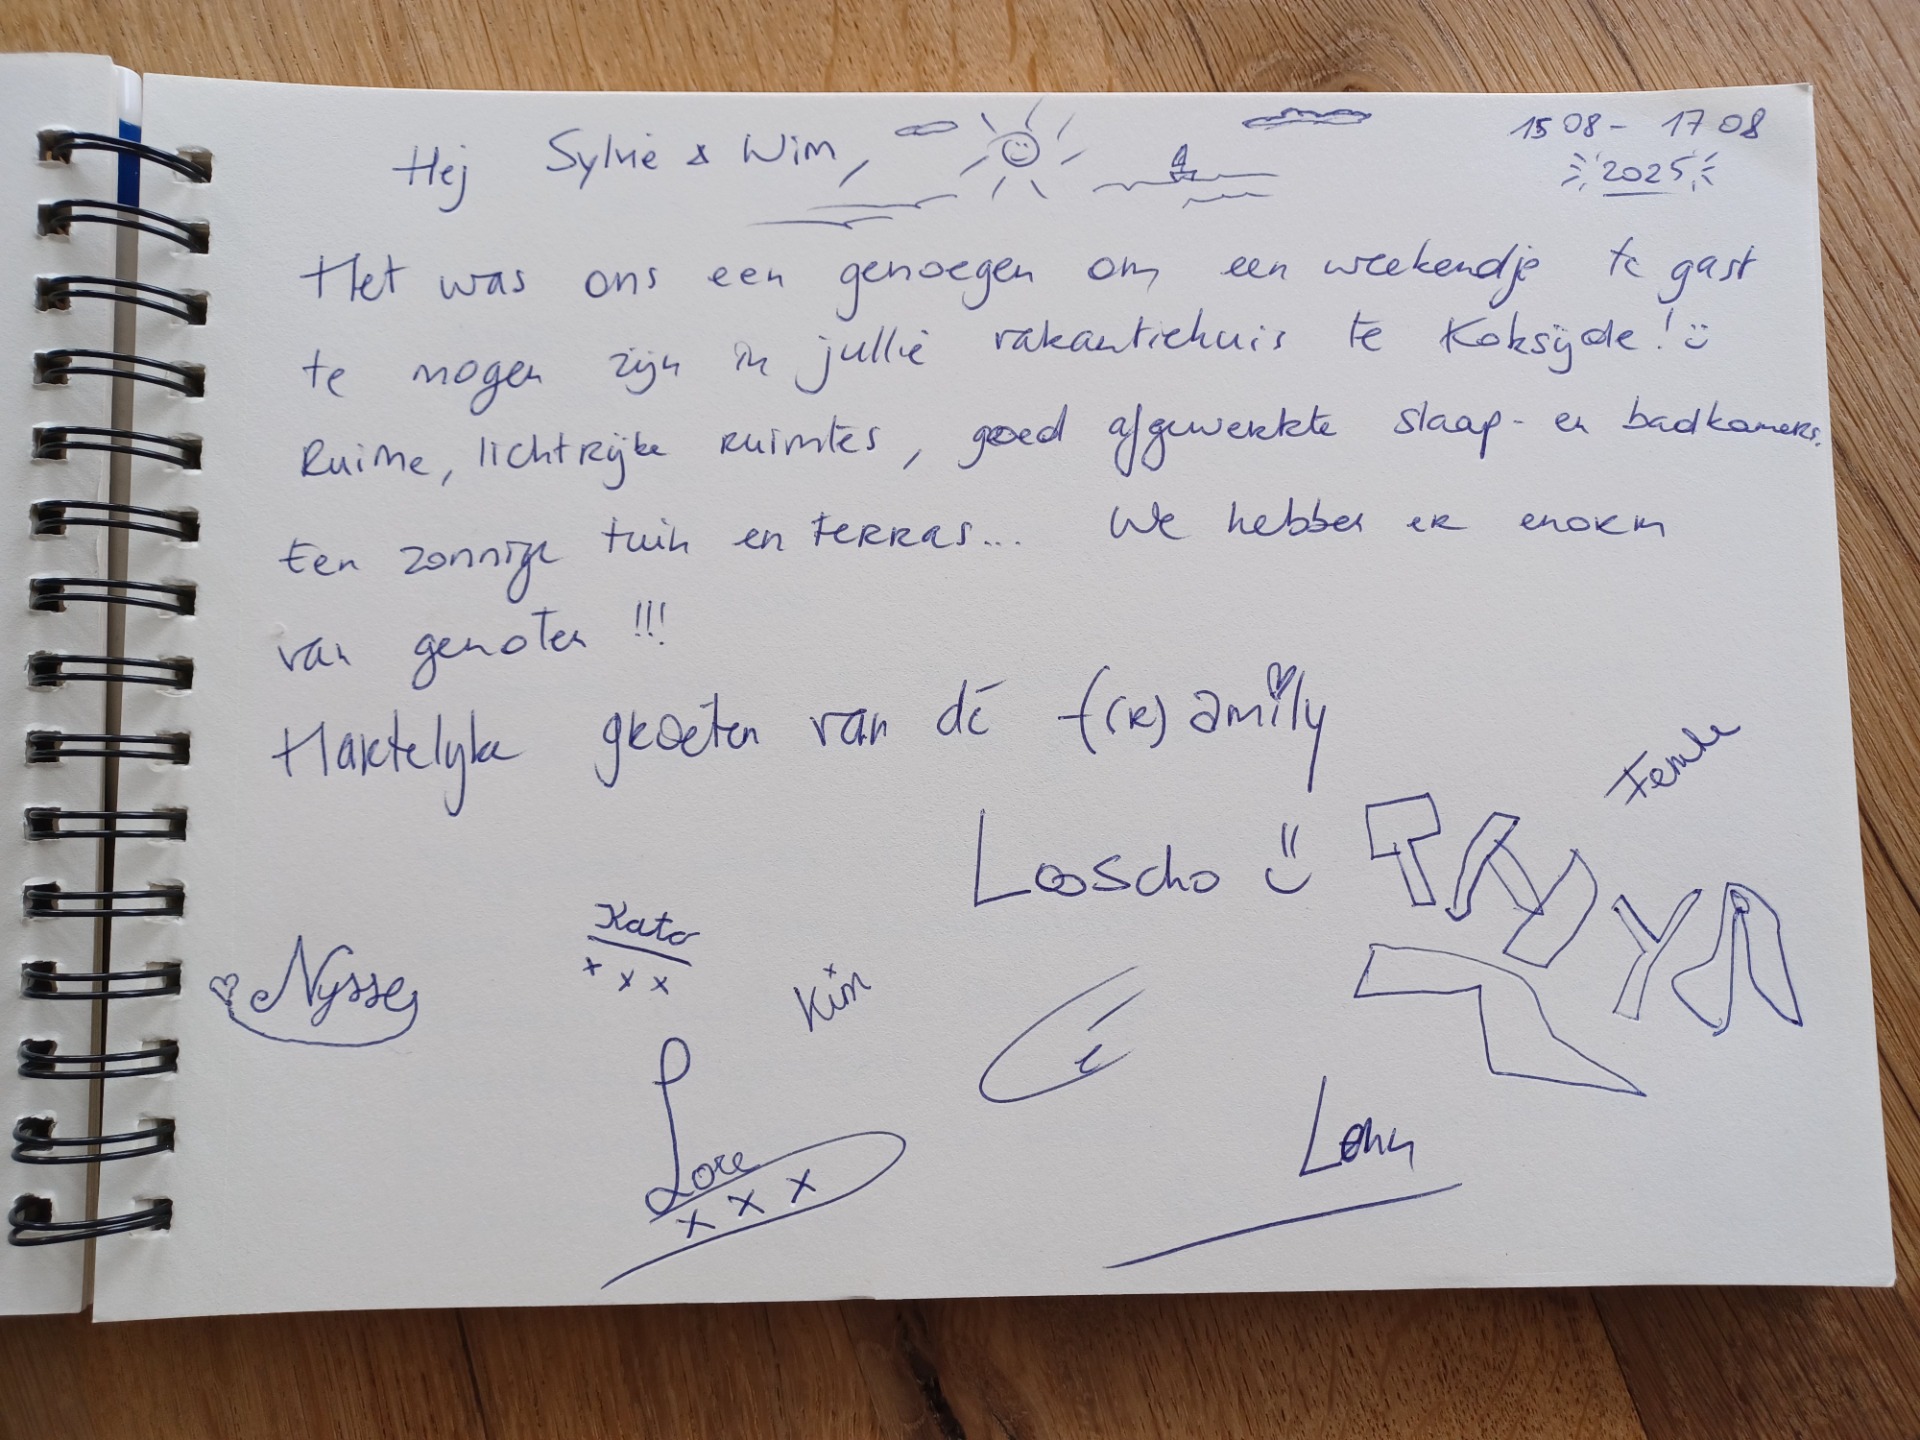 15 08 - 17 08
2025
Hej Sylvie & Wim,
Het was ons een genoegen om een weekendje te gast
te mogen zijn in jullie vakantiehuis te Koksijde! :)
Ruime, lichtrijke ruimtes, goed afgewerkte slaap- en badkamers.
Een zonnige tuin en terras... We hebben er enorm
van genoten !!!
Hartelijke groeten van dé f(r)amily
Looscho :)
Femke
Nysse
Kato
x x x
Kim
Lore
x x x